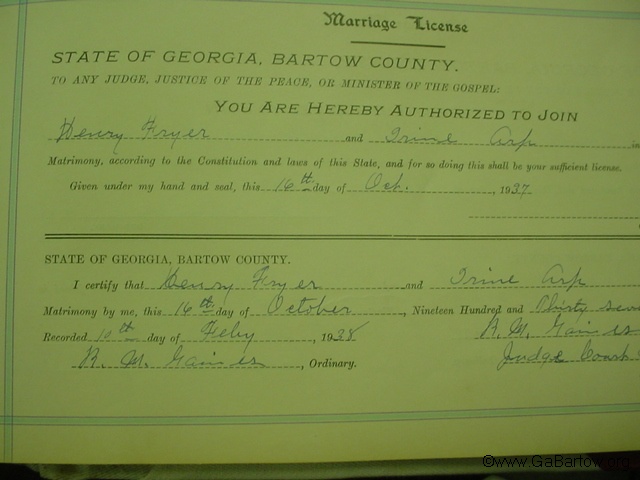 Marriage License
STATE OF GEORGIA, BARTOW COUNTY.
TO ANY JUDGE, JUSTICE OF THE PEACE, OR MINISTER OF THE GOSPEL:
YOU ARE HEREBY AUTHORIZED TO JOIN
Henry Fryer and Irine Arp in
Matrimony, according to the Constitution and laws of this State, and for so doing this shall be your sufficient license.
Given under my hand and seal, this 16th day of Oct. , 1937
STATE OF GEORGIA, BARTOW COUNTY.
I certify that Henry Fryer and Irine Arp
Matrimony by me, this 16th day of October , Nineteen Hundred and Thirty
Recorded 10th day of Feby , 1938 R. M. Gaines
R. M. Gaines , Ordinary. Judge
©www.GaBartow.org